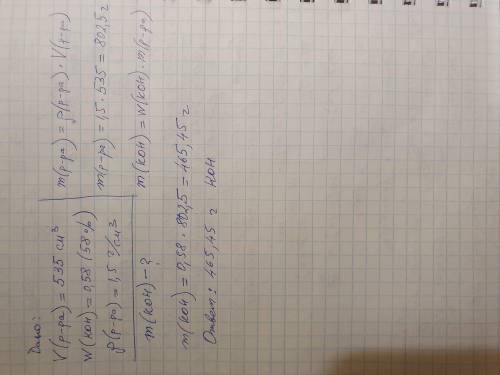 Дано:
V(р-ра) = 535 см³
W(KOH) = 0,58 (58%)
ρ(р-ра) = 1,5 г/см³
m(KOH) - ?
m(р-ра) = ρ(р-ра) · V(р-ра)
m(р-ра) = 1,5 · 535 = 802,5 г
m(KOH) = W(KOH) · m(р-ра)
m(KOH) = 0,58 · 802,5 = 465,45 г
Ответ: 465,45 г KOH